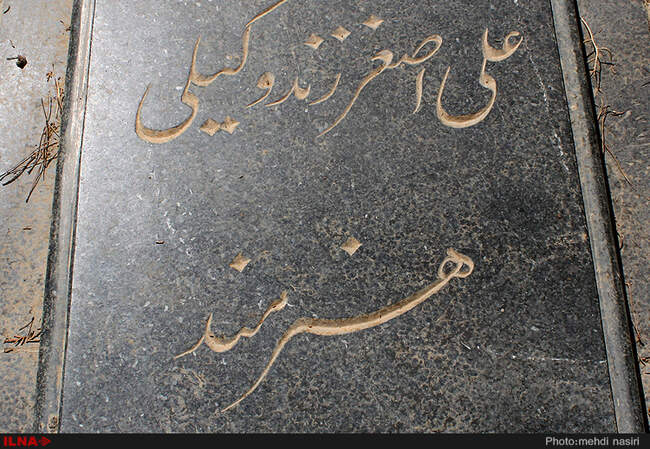 علی اصغر زندوکیلی
هنرمند
ILNA
Photo:mehdi nasiri